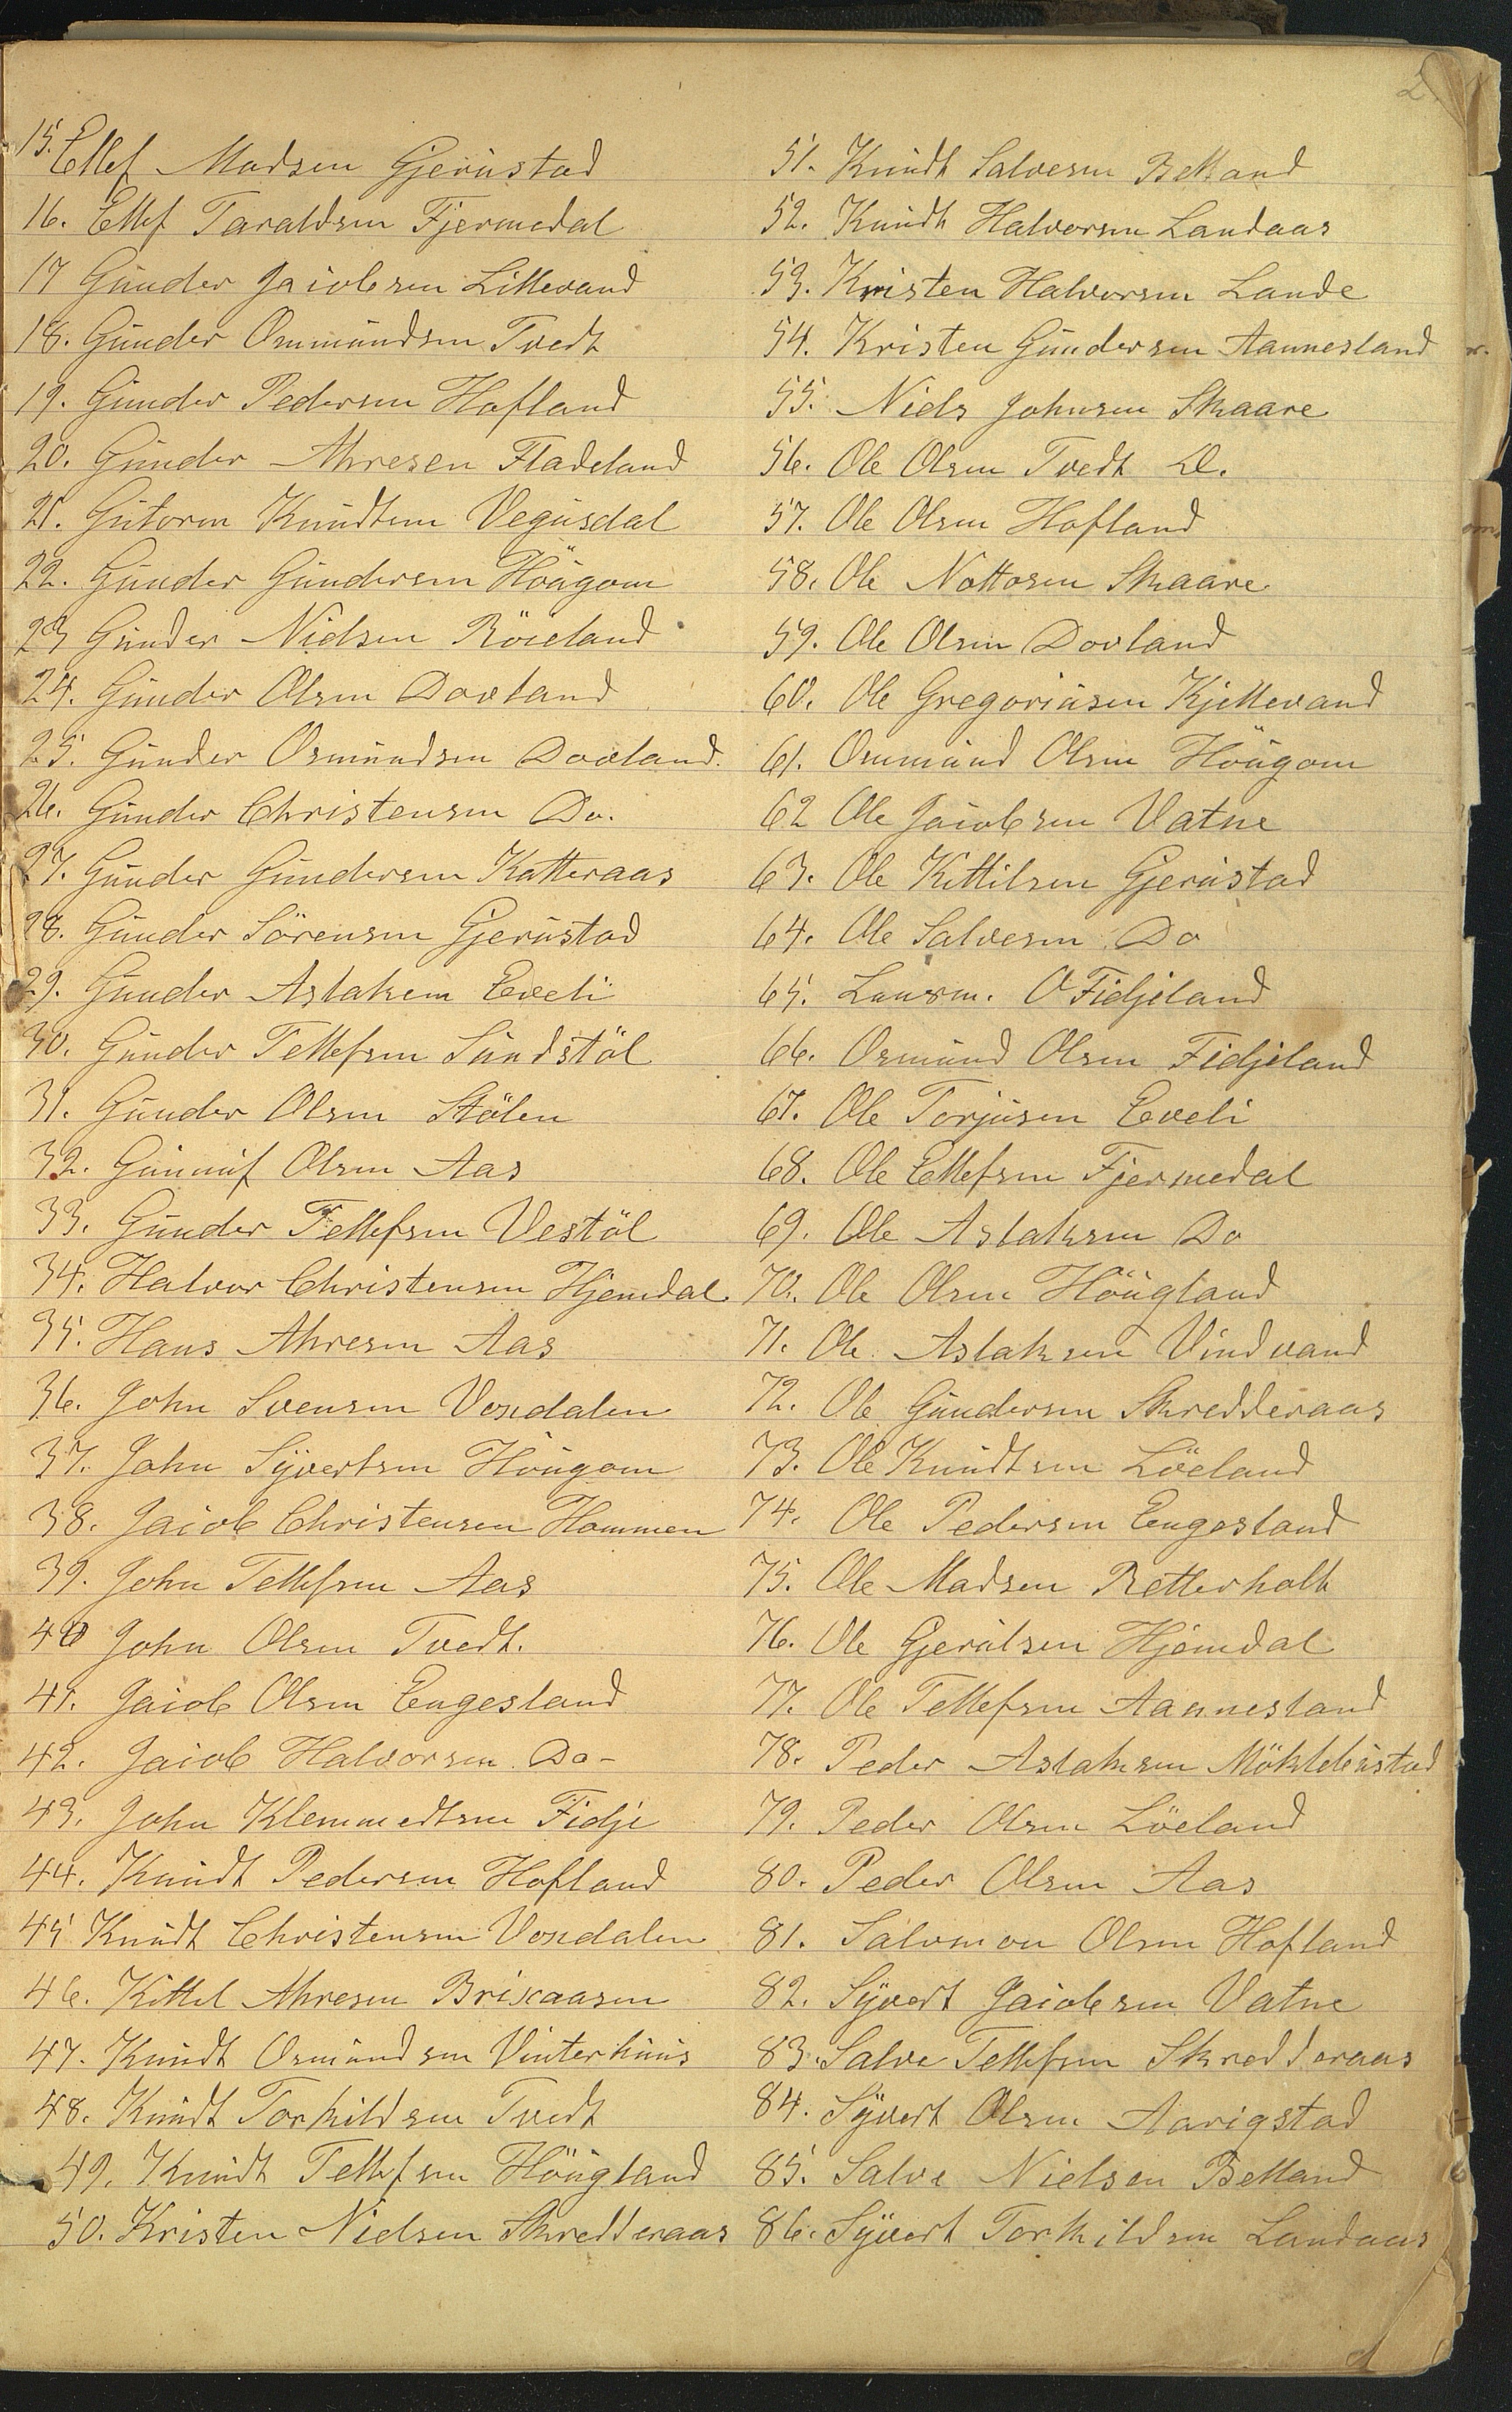 2.
15. Ellef Madsen Gjerustad
16. Ellef Taraldsen Fjermedal
17 Gunder Jacobsen Lillevand
18. Gunder Ommundsen Tvedt
19. Gunder Pedersen Hofland
20. Gunder Akresen Fladeland
21. Gutorm Knudtsen Vegusdal
22. Gunder Gundersen Höugom
23 Gunder Nielsen Röieland
24. Gunder Olsen Dovland
25. Gunder Osmundsen Dovland.
26. Gunder Christensen Do.
27. Gunder Gundersen Katteraas
28. Gunder Sörensen Gjerustad
29. Gunder Aslaksen Eveli
30. Gunder Tellefsen Sundstöl
31. Gunder Olsen Stölen
32. Gunnuf Olsen Aas
33. Gunder Tellefsen Vestöl
34. Halvor Christensen Hjemdal
35. Hans Akresen Aas
36. John Svensen Voxdalen
37. John Syvertsen Höugom
38. Jacob Christensen Hommen
39. John Tellefsen Aas
40 John Olsen Tvedt.
41. Jacob Olsen Engesland
42. Jacob Halvorsen Do-
43. John Klemmedtsen Fidje
44. Knudt Pedersen Hofland
45 Knudt Christensen Voxdalen
46. Kittel Akresen Brixaasen
47. Knudt Osmundsen Vinterhuus
48. Knudt Torkildsen Tvedt
49. Knudt Tellefsen Höugland
50. Kristen Nielsen Skredderaas
51. Knudt Salvesen Belland
52. Knudt Halvorsen Landaas
53. Kristen Halvorsen Lande
54. Kristen Gundersen Aannesland
55. Niels Johnsen Skaare
56. Ole Olsen Tvedt
57. Ole Olsen Hofland
58. Ole Nottosen Skaare
59. Ole Olsen Dovland
60. Ole Gregoriusen Kjellevand
61. Ommund Olsen Höugom
62 Ole Jacobsen Vatne
63. Ole Kittilsen Gjerustad
64. Ole Salvesen Do
65. Lensm. O Fidjeland
66. Osmund Olsen Fidjeland
67. Ole Torjusen Eveli
68. Ole Ellefsen Fjermedal
69. Ole Aslaksen Do
70. Ole Olsen Höugland
71. Ole Aslaksen Vindvand
72. Ole Gundersen Skredderaas
73. Ole Knudtsen Löeland
74. Ole Pedersen Engesland
75. Ole Madsen Retterholt
76. Ole Gjerulsen Hjemdal
77. Ole Tellefsen Aannesland
78. Peder Aslaksen Möklebustad
79. Peder Olsen Löeland
80. Peder Olsen Aas
81. Salomon Olsen Hofland
82. Syvert Jacobsen Vatne
83. Salve Tellefsen Skredderaas
84. Syvert Olsen Aarigstad
85. Salve Nielsen Belland
86. Syvert Torkildsen Landaas